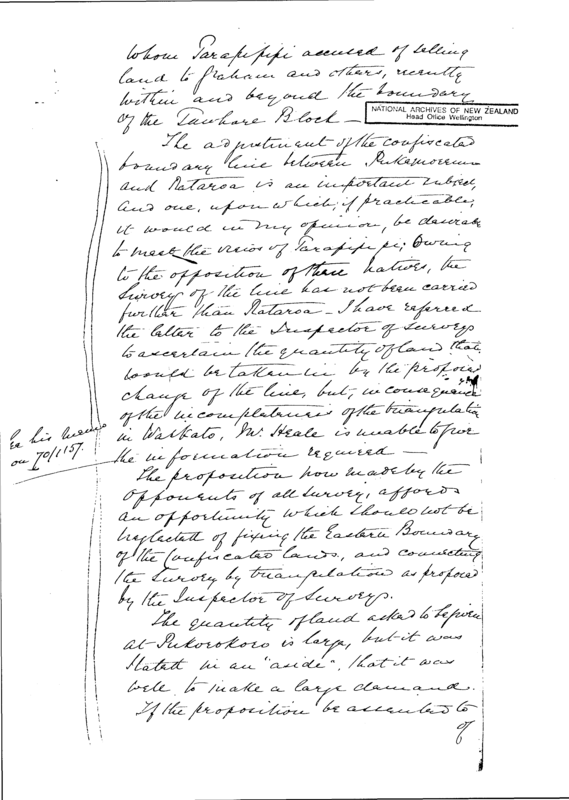 whom Parapipipi accused of selling
land to Graham and others, recently
within and beyond the boundary
of the Tauhare Block —
NATIONAL ARCHIVES OF NEW ZEALAND
Head Office Wellington
The adjustment of the confiscated
boundary line between Pukemoremu
and Hataroa is an important subject,
and one, upon which, if practicable,
it would in my opinion, be desirable
to meet the views of Parapipipi; Owing
to the opposition of these natives, the
Survey of the line has not been carried
further than Hataroa — I have referred
the latter to the Inspector of Surveys
to ascertain the quantity of land that
would be taken in by the proposed
change of the line, but, in consequence
of the incompleteness of the triangulation
in Waikato, Mr. Heale is unable to give
the information required —
his memo
on 70/1157.
The proposition now made by the
opponents of all survey, affords
an opportunity which should not be
neglected of fixing the Eastern Boundary
of the Confiscated lands, and connecting
the Survey by triangulation as proposed
by the Inspector of Surveys.
The quantity of land asked to be given
at Pukorokoro is large, but it was
stated in an "aside", that it was
well to make a large demand.
If the proposition be assented to
of